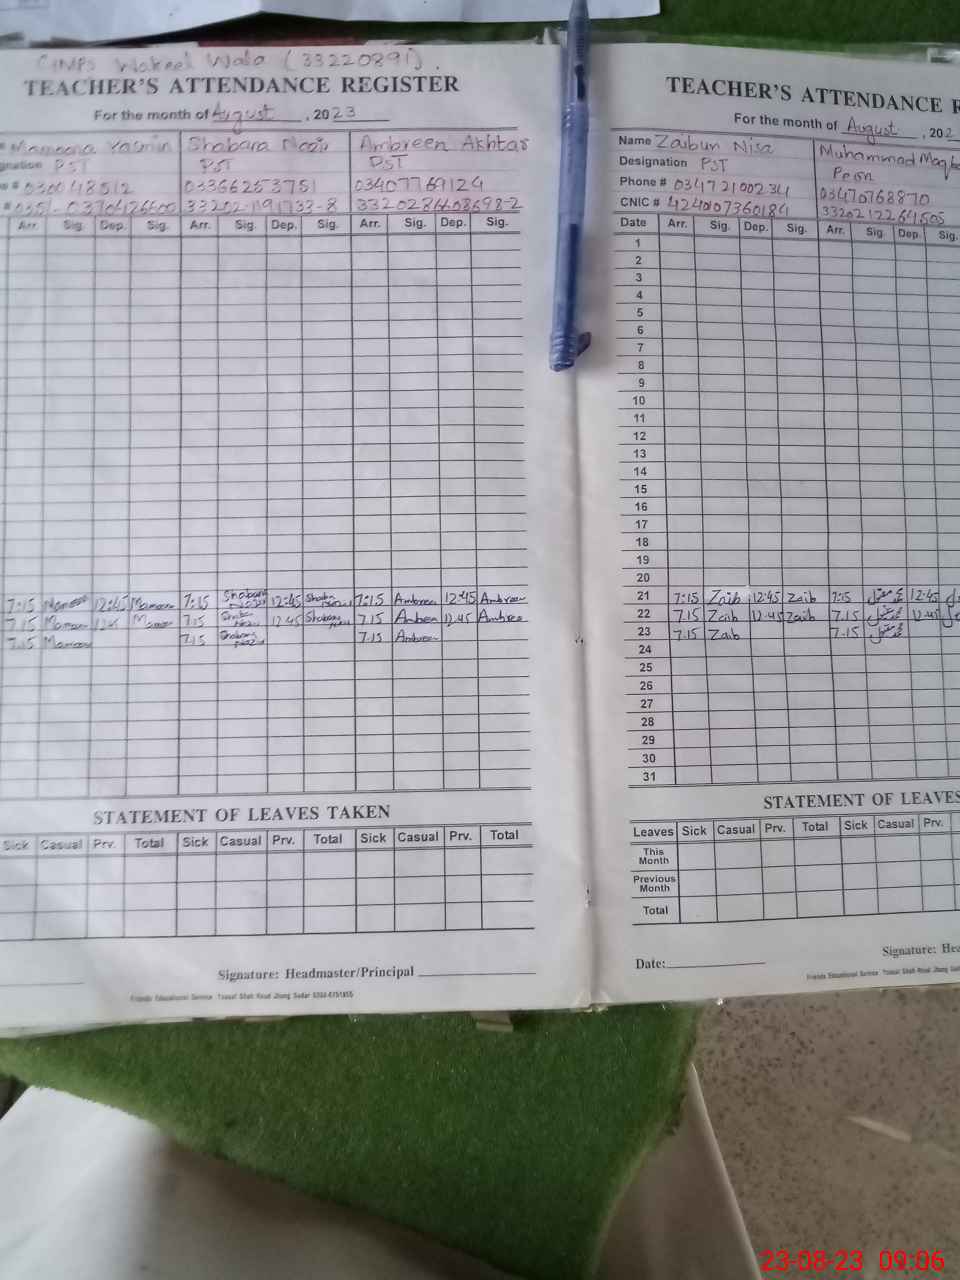 GMPS Wakeel Wala (33220891).
TEACHER'S ATTENDANCE REGISTER
For the month of August, 2023
Mamoona Yasmin Shabara Noor Ambreen Akhtar
gnation PST PST PST
# 0300 48512 03366253751 03407769124
# 0351-03704126600 33202-1191733-8 3320286408698-2
Arr. Sig. Dep. Sig. Arr. Sig. Dep. Sig. Arr. Sig. Dep. Sig.
7:15 12:45 Mamoon 7:15 Shabara 12:45 7:15 Ambreen 12:45 Ambreen
7.15 Mamoon 12:45 Mamoon 7.15 12.45 Shabara 7.15 Ambreen 12.45 Ambree
7.15 Mamoon 7.15 Shabara 7.15 Ambreen
STATEMENT OF LEAVES TAKEN
Sick Casual Prv. Total Sick Casual Prv. Total Sick Casual Prv. Total
Signature: Headmaster/Principal
Friends Educational Service Yousaf Shah Road Jhang Sadar
TEACHER'S ATTENDANCE R
For the month of August, 202
Name Zaibun Nisa Muhammad Maqb
Designation PST Peon
Phone # 03472100234 03470768870
CNIC # 4240107360184 3320212264505
Date Arr. Sig. Dep. Sig. Arr. Sig. Dep. Sig.
1
2
3
4
5
6
7
8
9
10
11
12
13
14
15
16
17
18
19
20
21 7:15 Zaib 12:45 Zaib 7:15 12:45
22 7.15 Zaib 12.45 Zaib 7.15 12.45
23 7.15 Zaib 7.15
24
25
26
27
28
29
30
31
STATEMENT OF LEAVES
Leaves Sick Casual Prv. Total Sick Casual Prv.
This Month
Previous Month
Total
Signature: Hea
Date:
Friends Educational Service Yousaf Shah Road Jhang Sadar
23-08-23 09:06